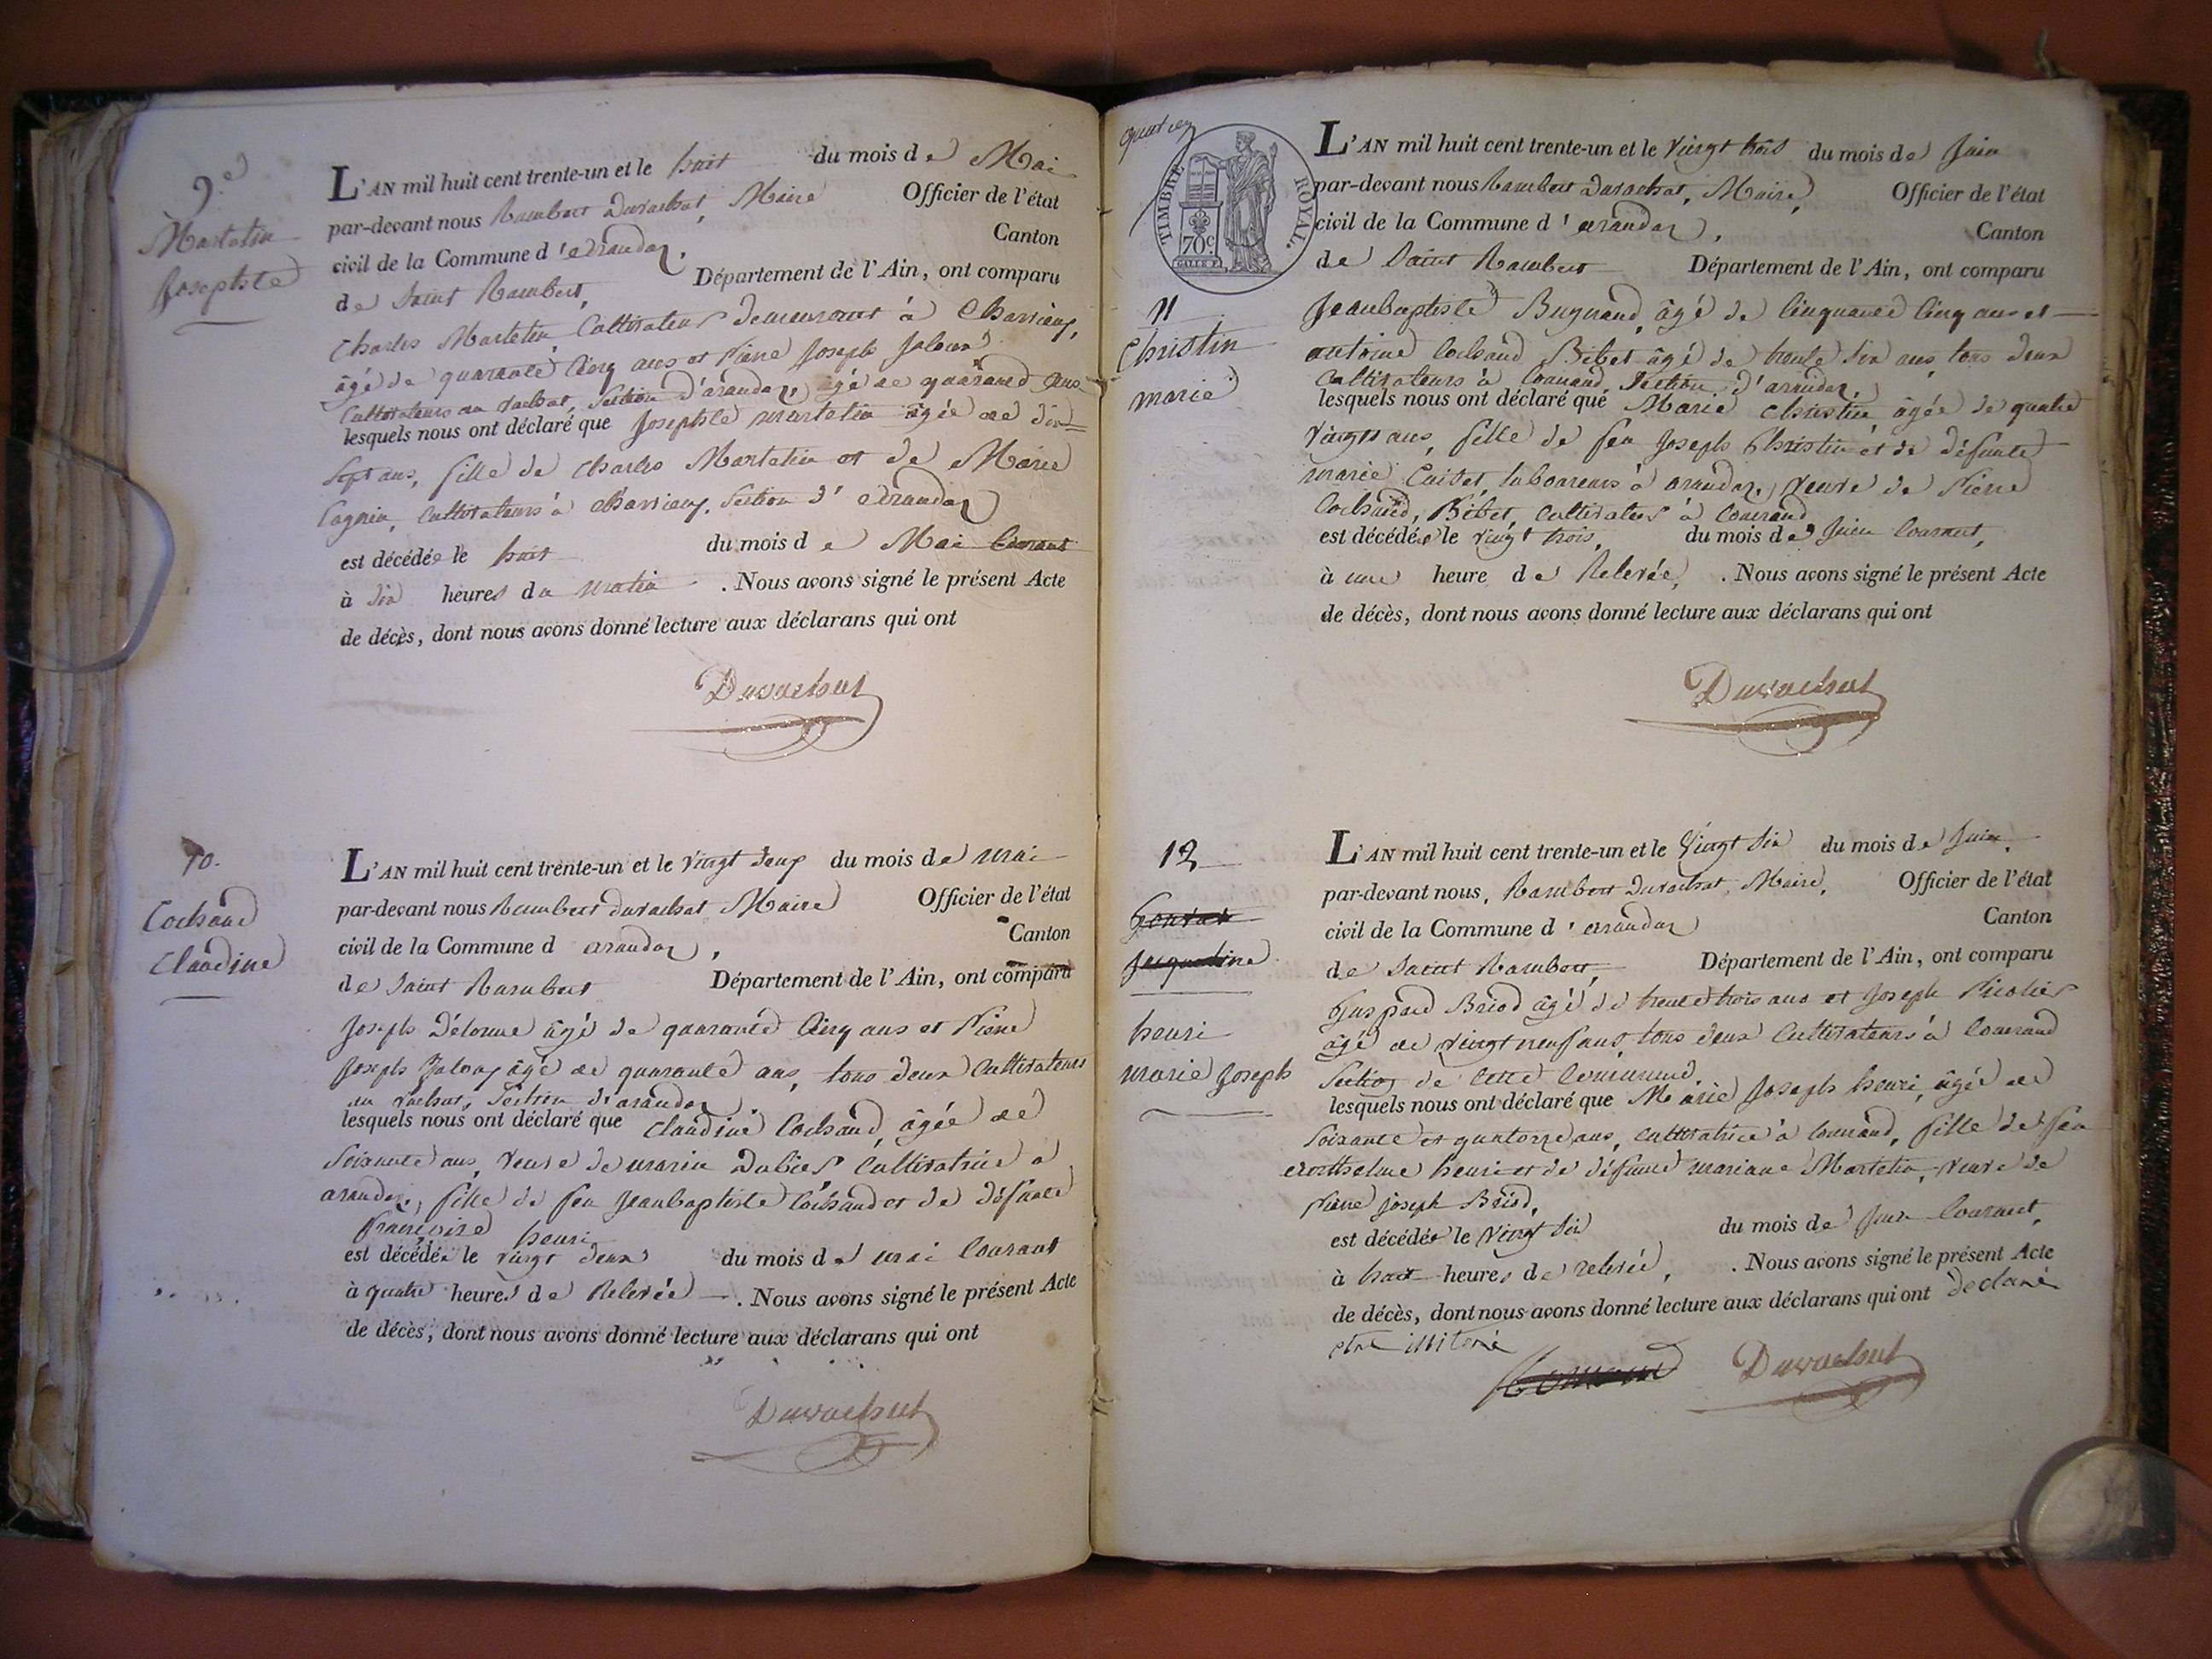 9.e
Martetin
Josephte
L'AN mil huit cent trente-un et le huit du mois de Mai
par-devant nous Rambert Duvachat, Maire Officier de l'état
civil de la Commune d'arandaz, Canton
de Saint Rambert, Département de l'Ain, ont comparu
Charles Martetin Cultivateur demeurant à
âgé de quarante Cinq ans et Pierre Joseph
Cultivateurs au vachat, Section d'arandaz, âgé de quarante ans
lesquels nous ont déclaré que Josephte martetin âgée de dix=
Sept ans, fille de Charles Martetin et de Marie
Cagnin, Cultivateurs à Section d'arandaz
est décédée le huit du mois de Mai Courant
à Six heures du matin . Nous avons signé le présent Acte
de décès, dont nous avons donné lecture aux déclarans qui ont
Duvachat
10.
Cochand
Claudine
L'AN mil huit cent trente-un et le vingt deux du mois de mai
par-devant nous Rambert Duvachat Maire Officier de l'état
civil de la Commune d arandaz, Canton
de Saint Rambert Département de l'Ain, ont comparu
Joseph Délorme âgé de quarante Cinq ans et Pierre
Joseph âgé de quarante ans, tous deux Cultivateurs
au vachat, Section d'arandaz
lesquels nous ont déclaré que Claudine Cochand, âgée de
Soixante ans, veuve de marin Cultivatrice à
arandaz, fille de feu Jeanbaptiste Cochand et de défunte
françoise henri
est décédée le vingt deux du mois de mai Courant
à quatre heures de Relevée . Nous avons signé le présent Acte
de décès, dont nous avons donné lecture aux déclarans qui ont
Duvachat
TIMBRE ROYAL.
70c
11
Christin
marie
L'AN mil huit cent trente-un et le vingt trois du mois de Juin
par-devant nous Rambert Duvachat, Maire, Officier de l'état
civil de la Commune d'arandaz, Canton
de Saint Rambert Département de l'Ain, ont comparu
Jeanbaptiste Bugnand, âgé de Cinquante Cinq ans et
antoine Cochand Bibet âgé de trente Six ans, tous deux
Cultivateurs à Conand, Section d'arandaz,
lesquels nous ont déclaré que Marie Christin, âgée de quatre
vingts ans, fille de feu Joseph Christin et de défunte
marie Laboureurs à arandaz, veuve de Pierre
Cochand, Bibet, Cultivateur à Conand
est décédée le vingt trois, du mois de Juin Courant,
à une heure de Relevée, . Nous avons signé le présent Acte
de décès, dont nous avons donné lecture aux déclarans qui ont
Duvachat
12
henri
marie Joseph
L'AN mil huit cent trente-un et le vingt Six du mois de Juin,
par-devant nous, Rambert Duvachat, Maire, Officier de l'état
civil de la Commune d'arandaz Canton
de Saint Rambert, Département de l'Ain, ont comparu
Gaspard Briod âgé de trente trois ans et Joseph
âgé de vingt neuf ans, tous deux Cultivateurs à Conand
Section de Cette Commune,
lesquels nous ont déclaré que Marie Joseph henri, âgée de
Soixante et quatorze ans, Cultivatrice à Conand, fille de feu
anthelme henri et de défunte mariane Martetin, veuve de
Pierre Joseph Briod,
est décédée le vingt Six du mois de Juin Courant,
à huit heures de relevée, . Nous avons signé le présent Acte
de décès, dont nous avons donné lecture aux déclarans qui ont declaré
etre
Duvachat